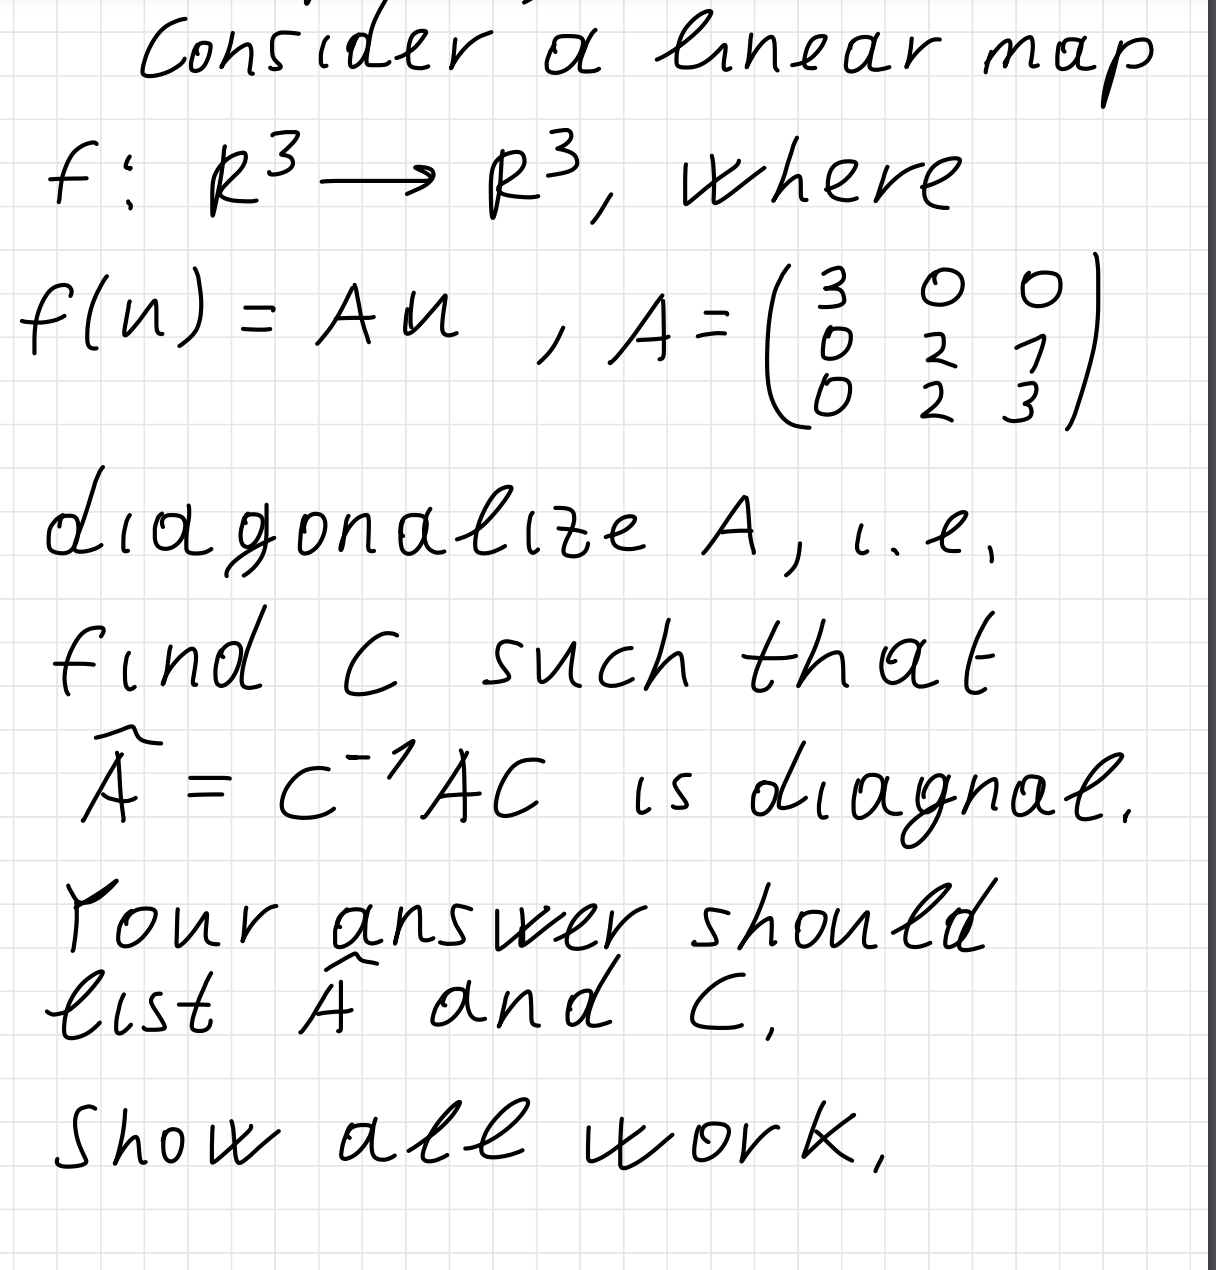 Consider a linear map
f: R³ → R³, where
f(u) = Au , A = (3 0 0
0 2 1
0 2 3)
diagonalize A, i.e.
find C such that
Â = C⁻¹AC is diagnal.
Your answer should
list Â and C.
Show all work.